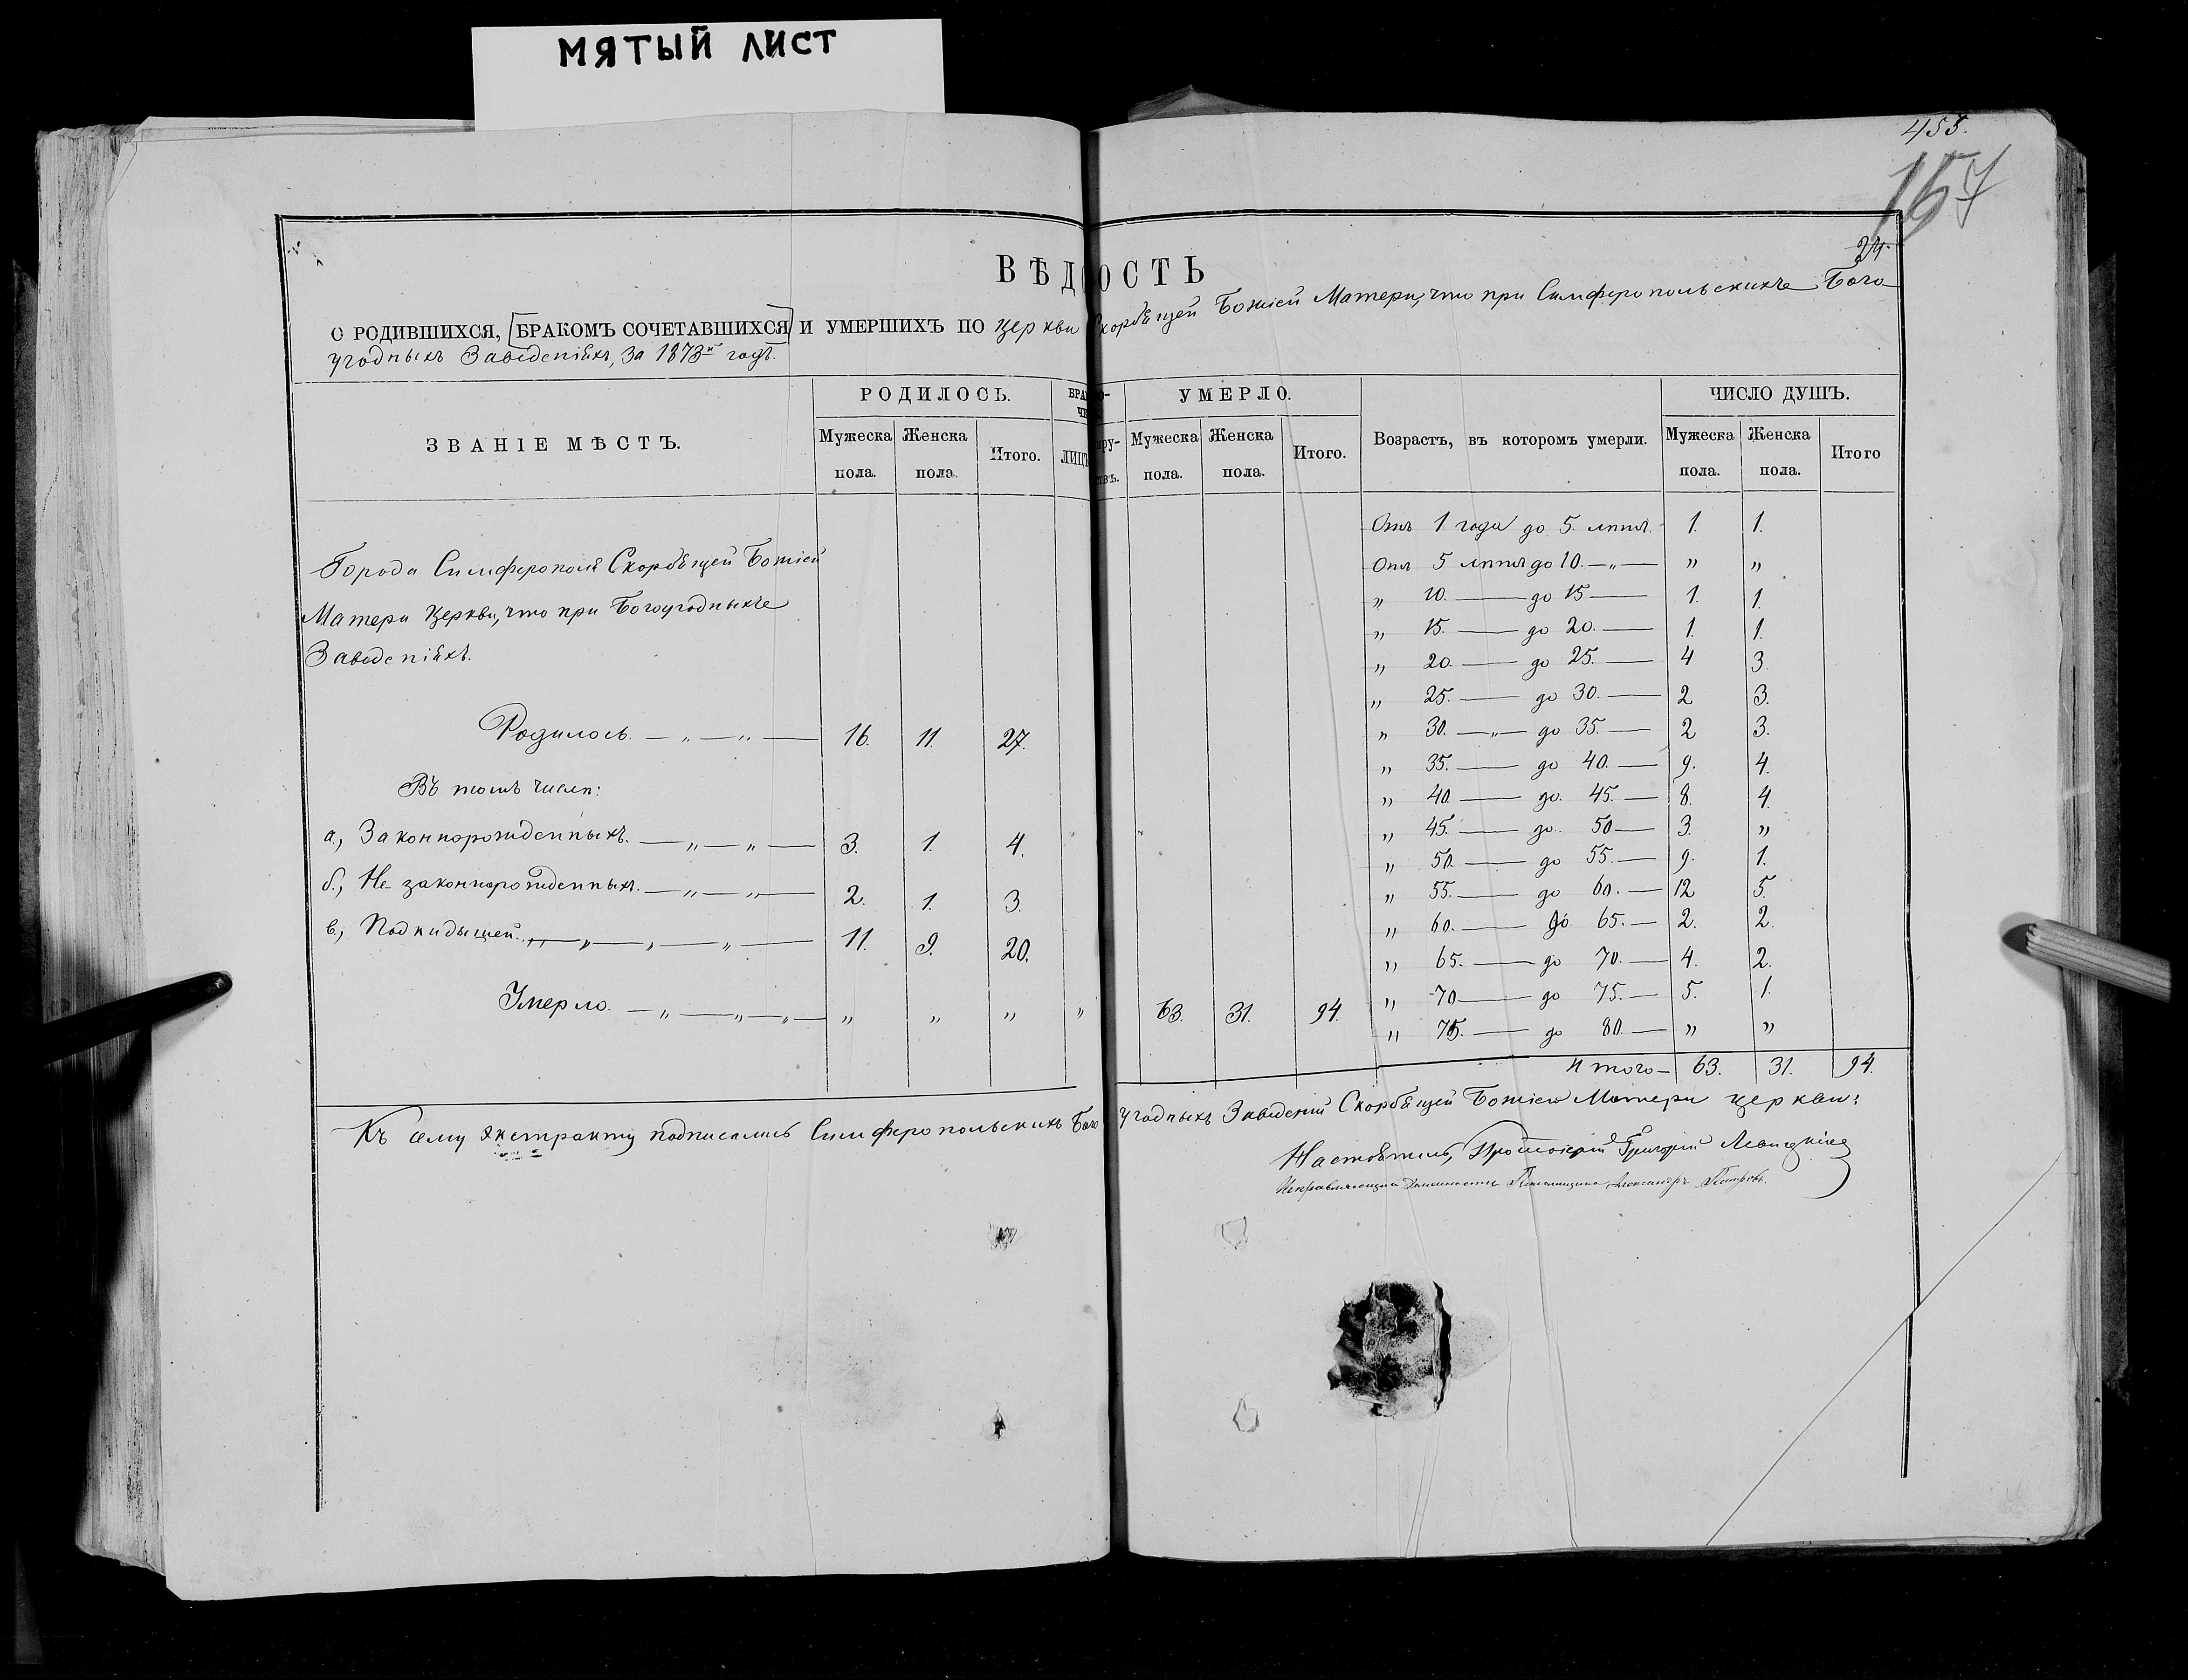 МЯТЫЙ ЛИСТ
455.
157
24
ВѢДОСТЬ
О РОДИВШИХСЯ, БРАКОМЪ СОЧЕТАВШИХСЯ И УМЕРШИХЪ ПО церкви Скорбящей Божіей Матери, что при Симферопольскихъ Бого
угодныхъ Заведеніяхъ, за 1873й годъ.
ЗВАНІЕ МѢСТЪ. РОДИЛОСЬ. УМЕРЛО. ЧИСЛО ДУШЪ.
Мужеска пола. Женска пола. Итого. ЛИЦЪ Мужеска пола. Женска пола. Итого. Возрастъ, въ которомъ умерли. Мужеска пола. Женска пола. Итого
Города Симферополя Скорбящей Божіей
Матери Церкви, что при Богоугодныхъ
Заведеніяхъ.
Родилось. — „ — „ — 16. 11. 27.
Въ томъ числѣ:
а, Законнорожденныхъ. — „ — „ — 3. 1. 4.
б, Не-законнорожденныхъ. — „ — „ — 2. 1. 3.
в, Подкидышей. „ — „ — „ — „ — 11. 9. 20.
Умерло. — „ — „ — „ — „ „ „ „ 63. 31. 94.
Отъ 1 года до 5 лѣтъ. 1. 1.
Отъ 5 лѣтъ до 10. — „ — „ „
„ 10. — до 15 — 1. 1.
„ 15. — до 20. — 1. 1.
„ 20. — до 25. — 4 3.
„ 25. — до 30. — 2 3.
„ 30. — „ — до 35. — 2 3.
„ 35. — до 40. — 9. 4.
„ 40 — до 45. — 8. 4.
„ 45. — до 50 — 3. „
„ 50. — до 55. — 9. 1.
„ 55. — до 60. — 12 5.
„ 60. — до 65. — 2. 2.
„ 65. — до 70. — 4. 2.
„ 70 — до 75. — 5. 1.
„ 75. — до 80. — „ „
Итого — 63. 31. 94.
Къ сему экстракту подписались Симферопольскихъ Богоугодныхъ Заведеній Скорбящей Божіей Матери церкви:
Настоятель, Протоіерей Григорій
Исправляющій Должность Псаломщика Александръ Петровъ.